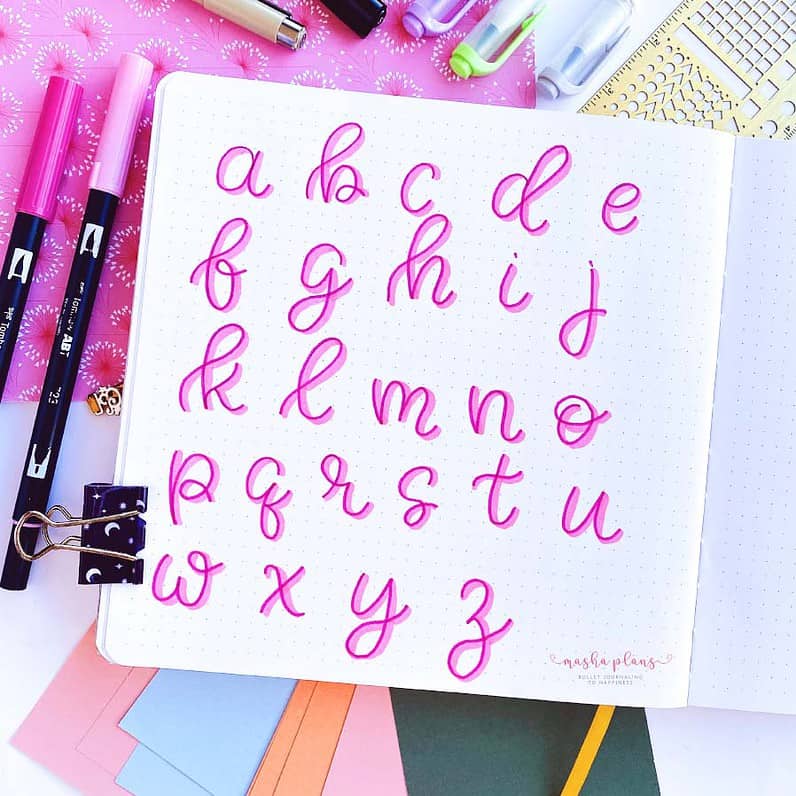 a b c d e
f g h i j
k l m n o
p q r s t u
w x y z
masha plans
BULLET JOURNALING
TO HAPPINESS
Tombow ABT
723